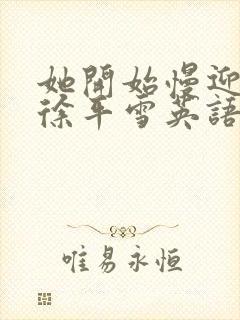 她開始慢迎
徐平雪英語
唯易永恒